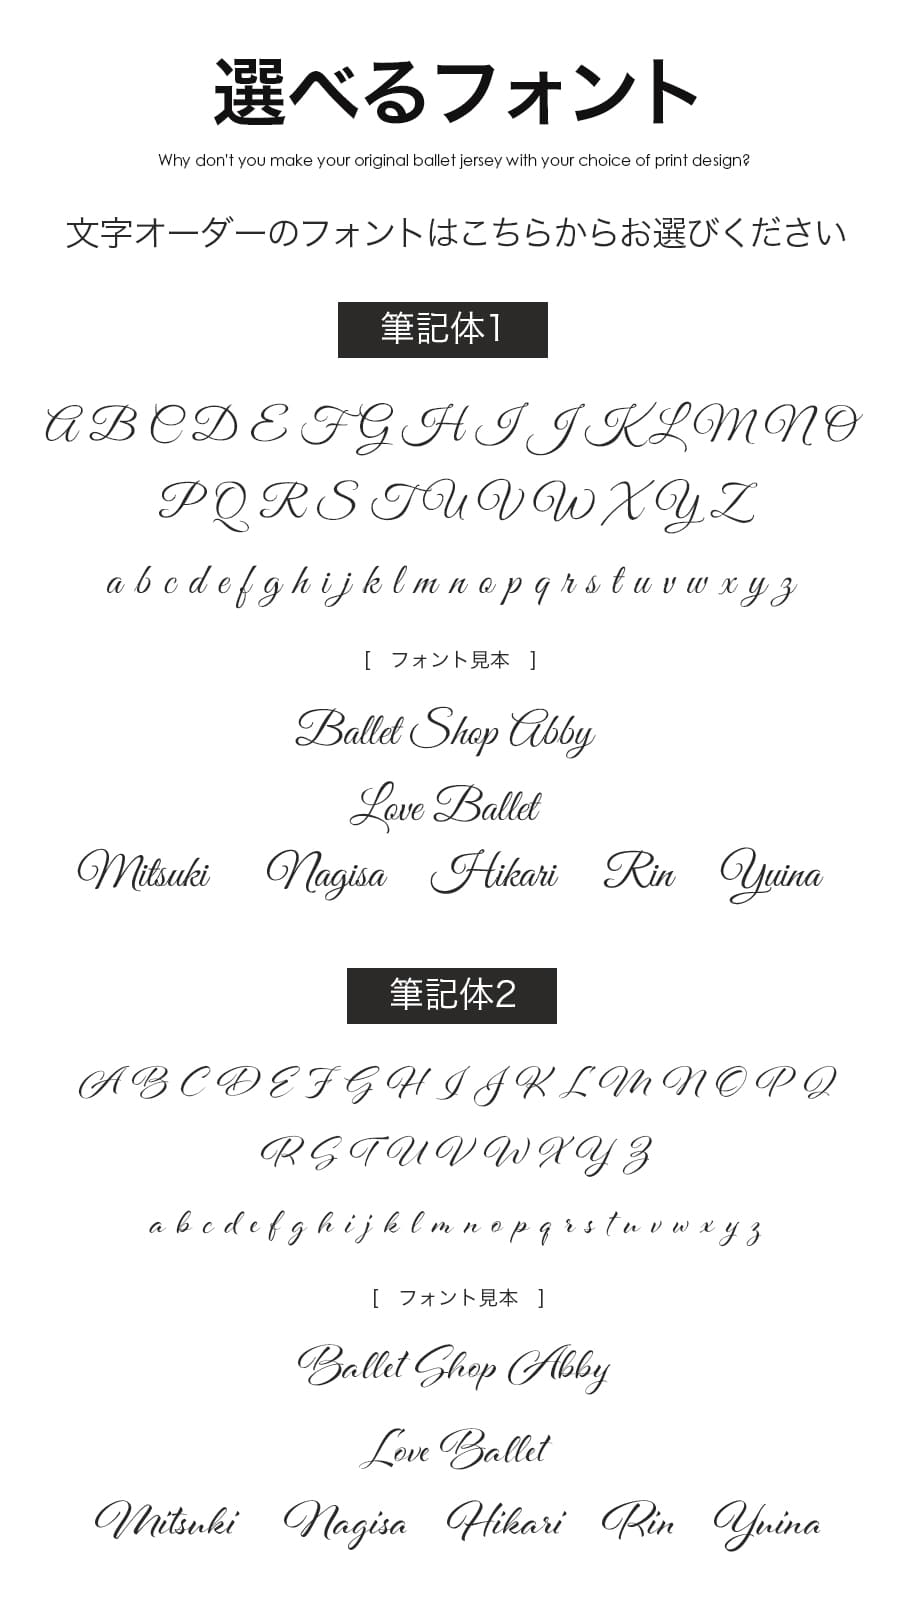 選べるフォント
Why don't you make your original ballet jersey with your choice of print design?
文字オーダーのフォントはこちらからお選びください
筆記体1
A B C D E F G H I J K L M N O
P Q R S T U V W X Y Z
a b c d e f g h i j k l m n o p q r s t u v w x y z
[ フォント見本 ]
Ballet Shop Abby
Love Ballet
Mitsuki Nagisa Hikari Rin Yuina
筆記体2
A B C D E F G H I J K L M N O P Q
R S T U V W X Y Z
a b c d e f g h i j k l m n o p q r s t u v w x y z
[ フォント見本 ]
Ballet Shop Abby
Love Ballet
Mitsuki Nagisa Hikari Rin Yuina